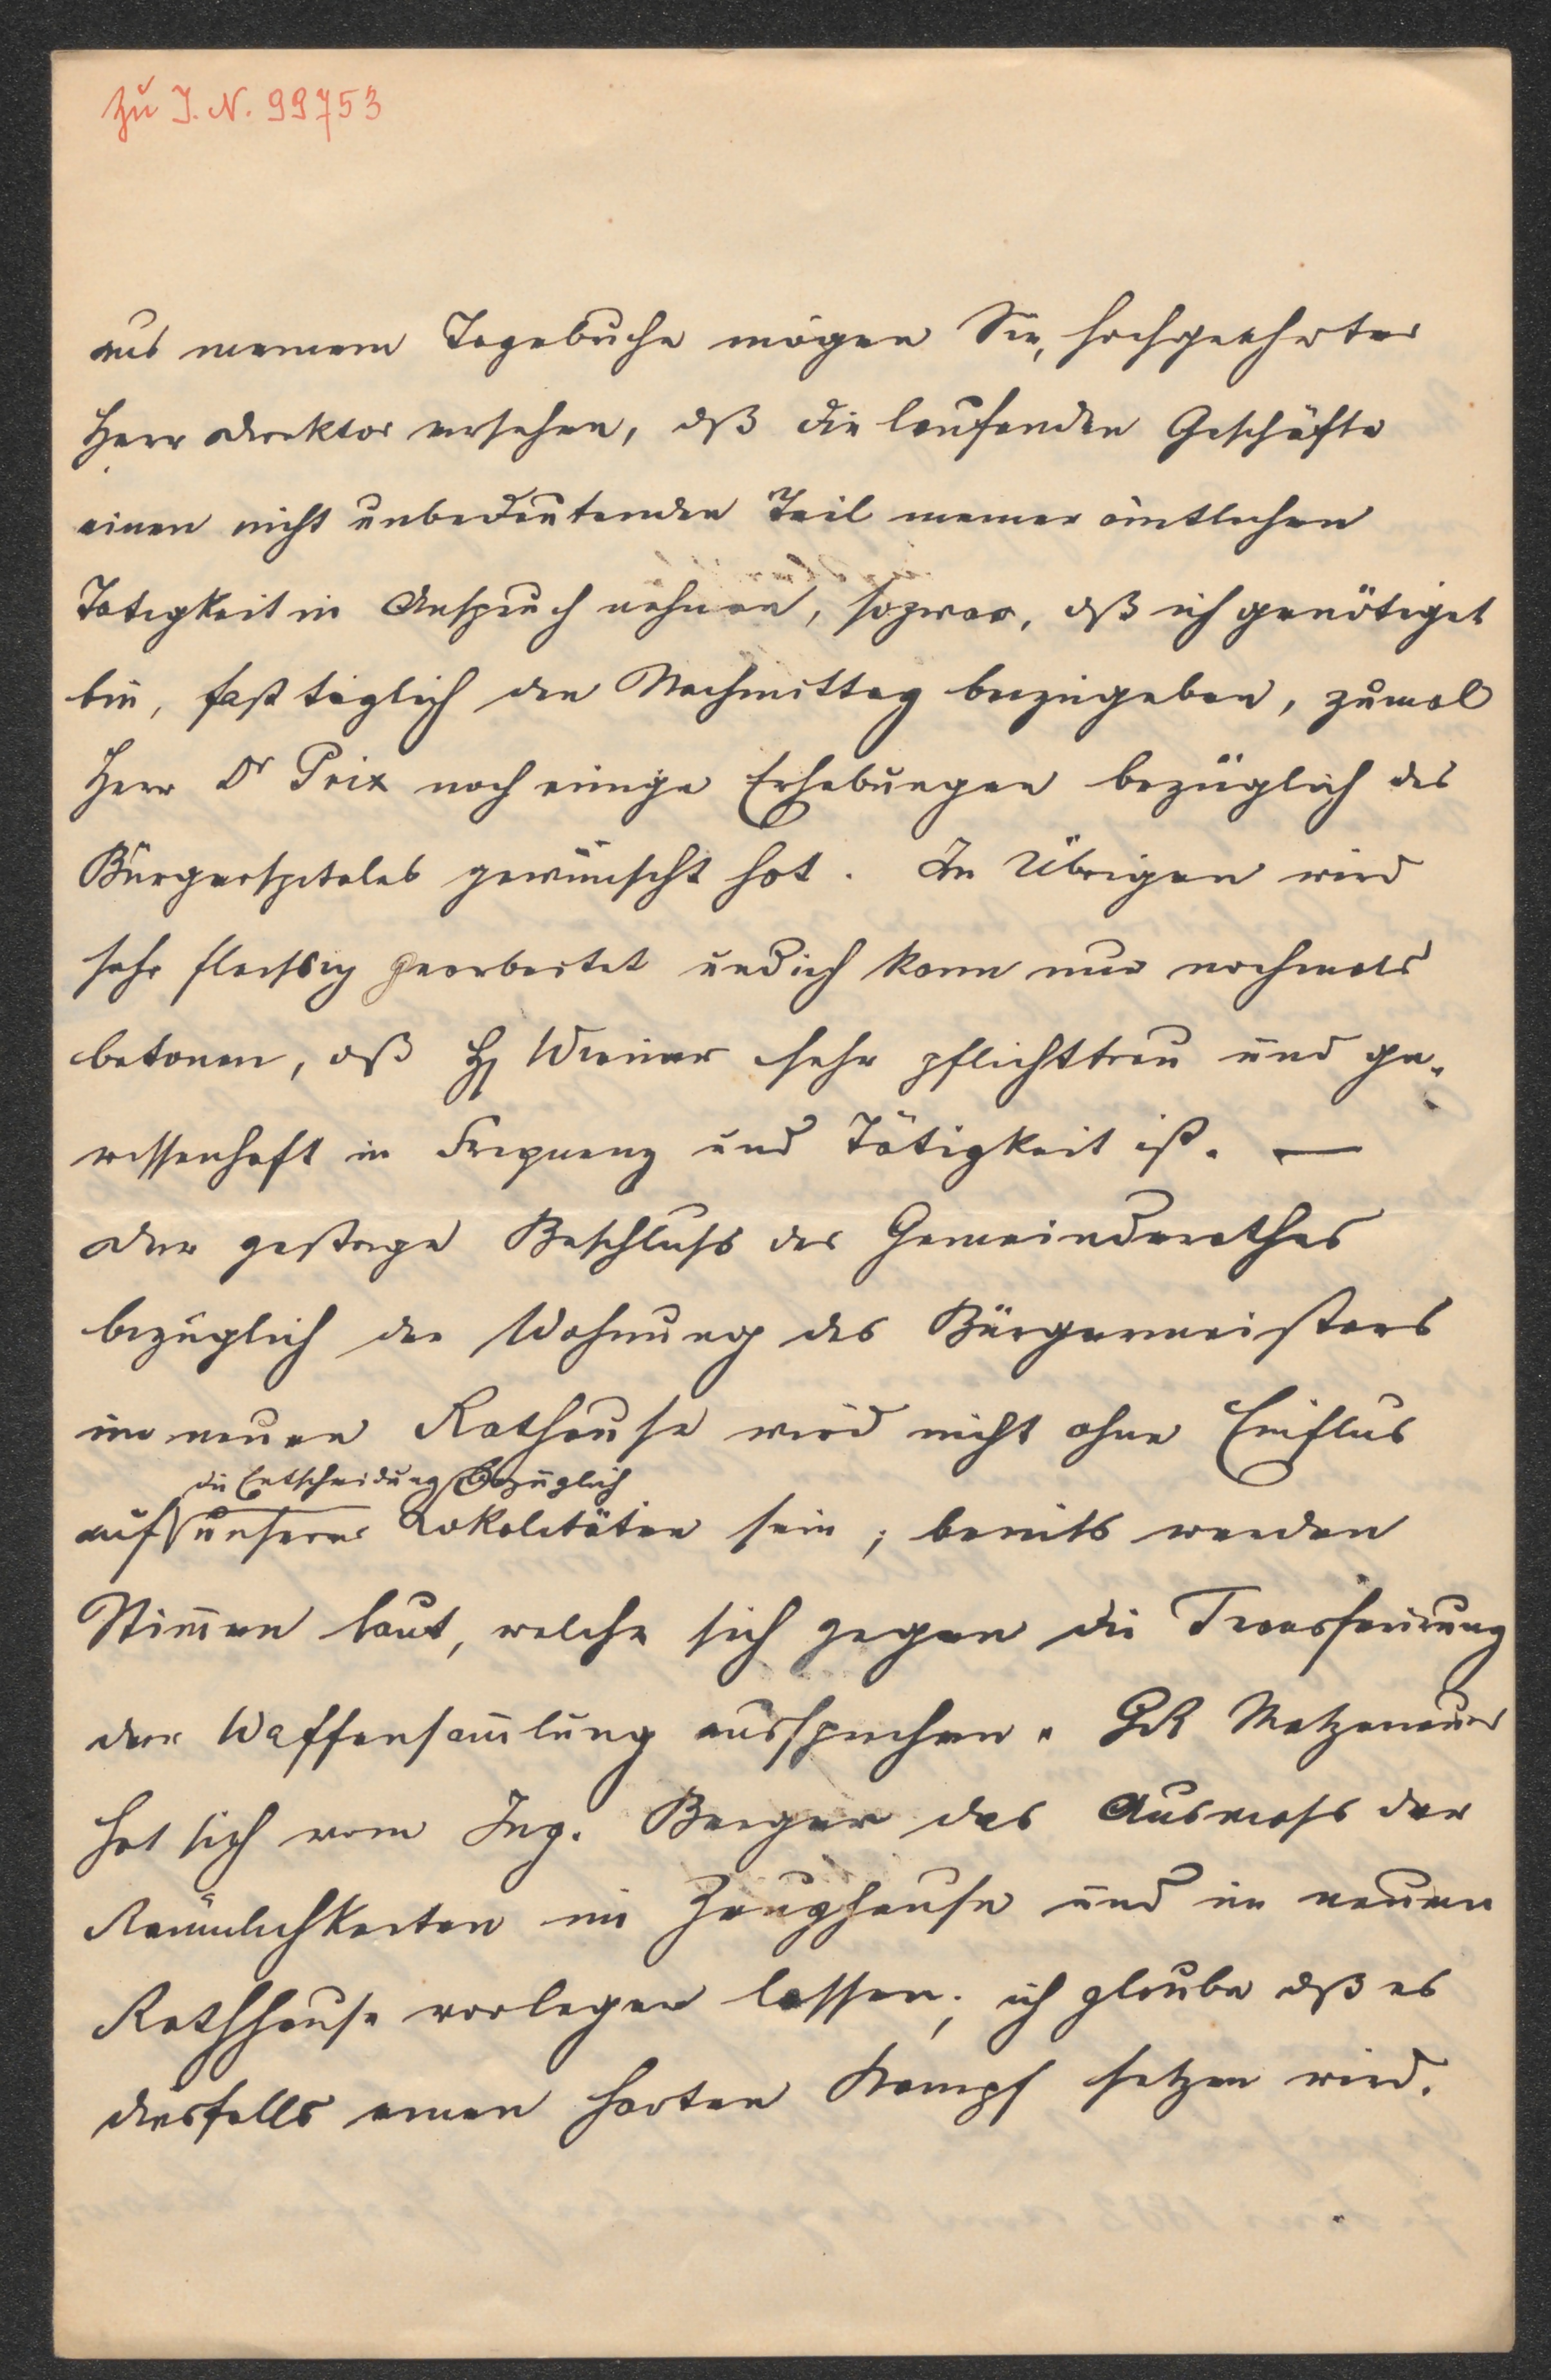 zu J. N. 99753
aus meinem Tagebuche mögen Sie, hochgeehrter
Herr Direktor ersehen, dß die laufenden Geschäfte
einen nicht unbedeutenden Teil meiner ämtlichen
Tätigkeit in Anspruch nehmen, sozwar, dß ich genötiget
bin, fast täglich den Nachmittag beizugeben, zumal
Herr Dr Prix noch einige Erhebungen bezüglich des
Bürgerspitales gewünscht hat. Im Übrigen wird
sehr fleissig gearbeitet und ich kann nur nochmals
betonen, dß H Wiener sehr pflichttreu und ge-
wissenhaft in Frequenz und Tätigkeit ist. —
Der gestrige Beschluss des Gemeinderathes
bezüglich der Wohnung des Bürgermeisters
im neuen Rathause wird nicht ohne Einflus
die Entscheidung bezüglich
auf unserer Lokalitäten sein; bereits werden
Stimmen laut, welche sich gegen die Transferirung
der Waffensamlung aussprechen. GR Matzenauer
hat sich vom Ing. Berger das Ausmass der
Räumlichkeiten im Zeughause und im neuen
Rathhause vorlegen lassen; ich glaube dß es
diesfalls einen harten Kampf setzen wird.